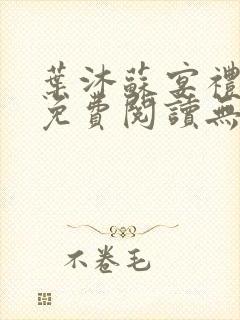 葉沐蘇宴禮
免費閱讀無
不卷毛